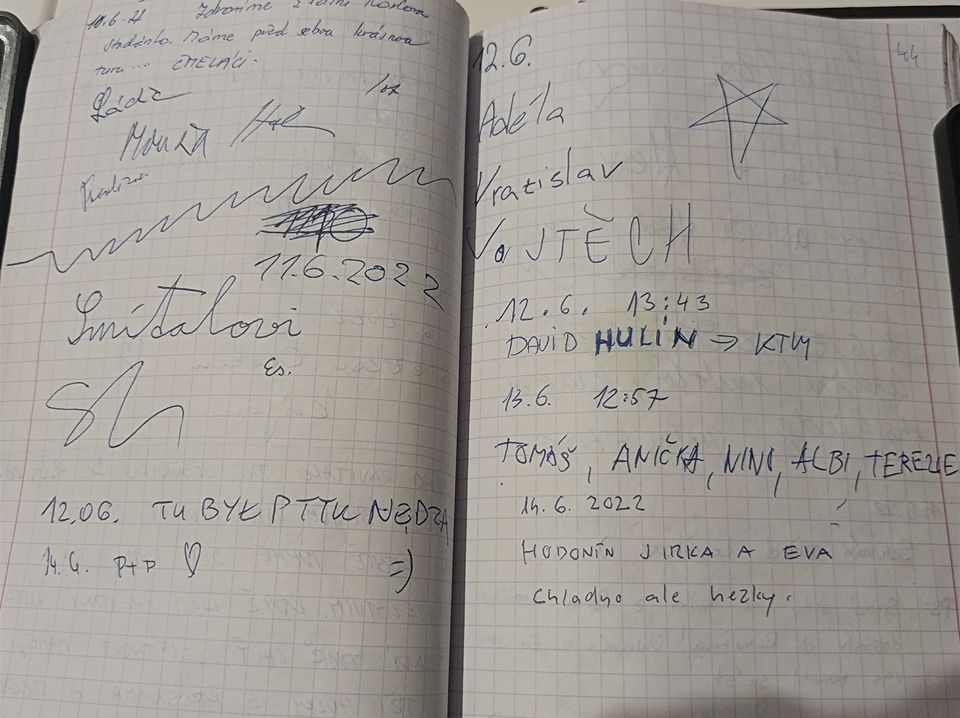 10.6.22 Zdravíme z
studánka. Máme před sebou krásnou
túru ... ČMELÁCI.
Láďa
Monča
11.6.2022
Smítalovi
12.06. TU BYŁ PTTK NĘDZA
14.6. P+P ♡ =)
44
12.6.
Adéla
Vratislav
VoJTĚCH
12.6. 13:43
DAVID HULÍN → KTM
13.6. 12:57
TOMÁŠ, ANIČKA, NINI, ALBI, TEREZIE
14.6. 2022
HODONÍN JIRKA A EVA
Chladno ale hezky.